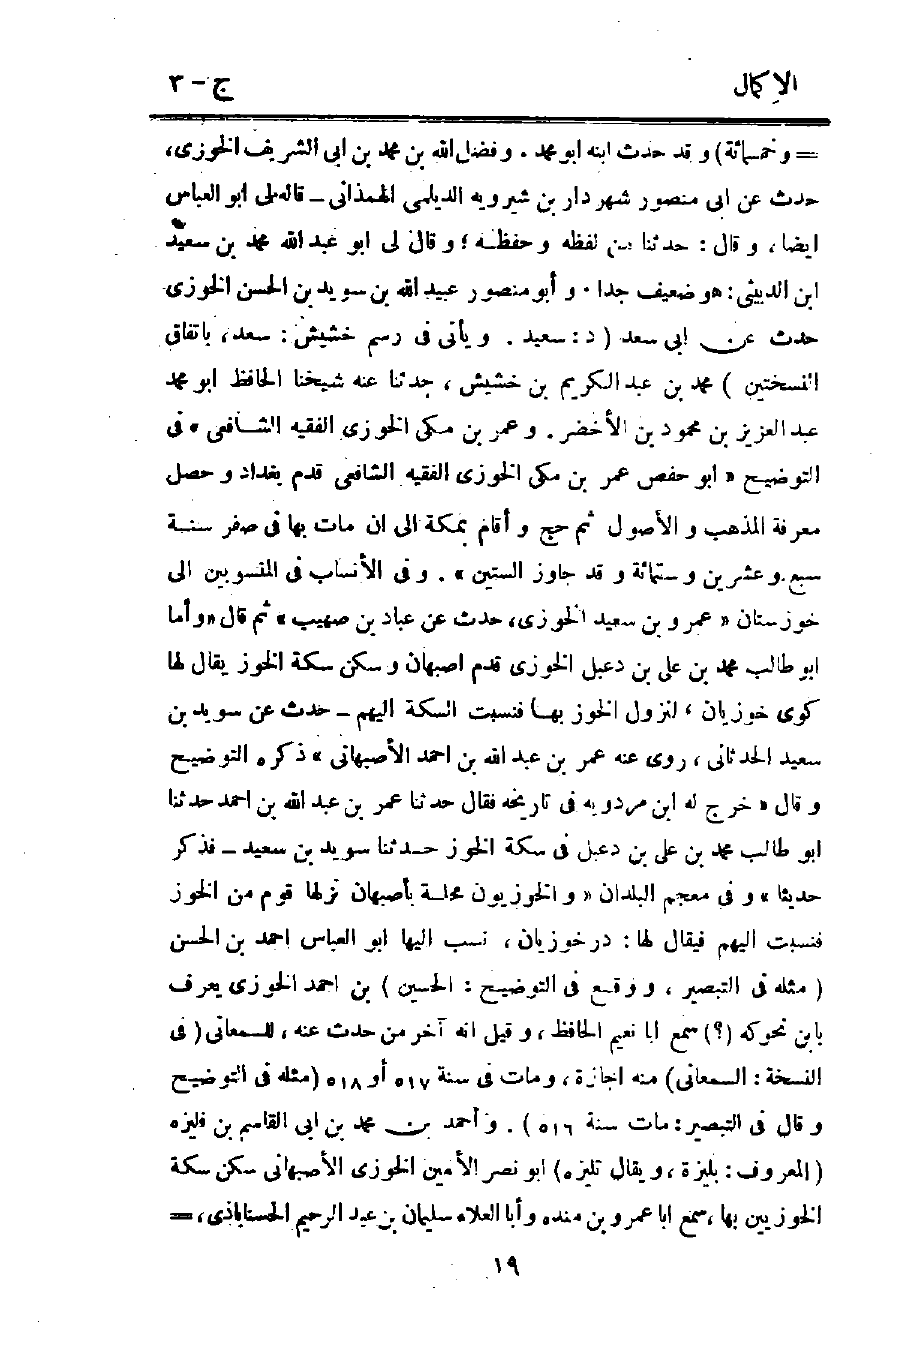 الإكمال ج-٣
= وخمسائة) و قد حدث ابنه ابو محمد . و فضل الله بن محمد بن ابى الشريف الخوزى،
حدث عن ابى منصور شهر دار بن شيرويه الديلمى الهمذانى - قاله لى ابو العباس
ايضا، و قال : حدثنا من لفظه و حفظـه ؛ و قال لى ابو عبد الله محمد بن سعيد
ابن الدبيثى: هو ضعيف جدا . و أبو منصور عبيد الله بن سويد بن الحسن الخوزى
حدث عن ابى سعد ( د : سعيد . و يأتى فى رسم خشيش : سعد، باتفاق
النسختين ) محمد بن عبد الكريم بن خشيش ، حدثنا عنه شيخنا الحافظ ابو محمد
عبد العزيز بن محمود بن الأخضر . و عمر بن مكى الخوزى الفقيه الشافعى » فى
التوضيح « ابو حفص عمر بن مكى الخوزى الفقيه الشافعى قدم بغداد و حصل
معرفة المذهب و الأصول ثم حج و أقام بمكة الى ان مات بها فى صفر سنة
سبع و عشرين و ستمائة و قد جاوز الستين » . و فى الأنساب فى المنسوبين الى
خوزستان « عمرو بن سعيد الخوزى، حدث عن عباد بن صهيب » ثم قال « و أما
ابو طالب محمد بن على بن دعبل الخوزى قدم اصبهان و سكن سكة الخوز يقال لها
كوى خوزيان ، لنزول الخوز بها فنسبت السكة اليهم - حدث عن سويد بن
سعيد الحدثانى ، روى عنه عمر بن عبد الله بن احمد الأصبهانى » ذكره التوضيح
و قال « خرج له ابن مردويه فى تاريخه فقال حدثنا عمر بن عبد الله بن احمد حدثنا
ابو طالب محمد بن على بن دعبل فى سكة الخوز حدثنا سويد بن سعيد - فذكر
حديثا » و فى معجم البلدان « و الخوزيون محلة بأصبهان نزلها قوم من الخوز
فنسبت اليهم فيقال لها : در خوزيان ، نسب اليها ابو العباس احمد بن الحسن
( مثله فى التبصير ، و وقع فى التوضيح : الحسين ) بن احمد الخوزى يعرف
بابن نجوكه (؟) سمع ابا نعيم الحافظ ، و قيل انه آخر من حدث عنه ، للسمعانى ( فى
النسخة : السمعانى) منه اجازة ، ومات فى سنة ٥١٧ أو ٥١٨ (مثله فى التوضيح
و قال فى التبصير : مات سنة ٥١٦ ) . و أحمد بن محمد بن ابى القاسم بن فليزه
(المعروف : بليزة ، و يقال تليزه) ابو نصر الأمين الخوزى الأصبهانى سكن سكة
الخوزيين بها ،سمع ابا عمرو بن منده و أبا العلاء سليمان بن عبد الرحيم الحسناباذى، =
١٩